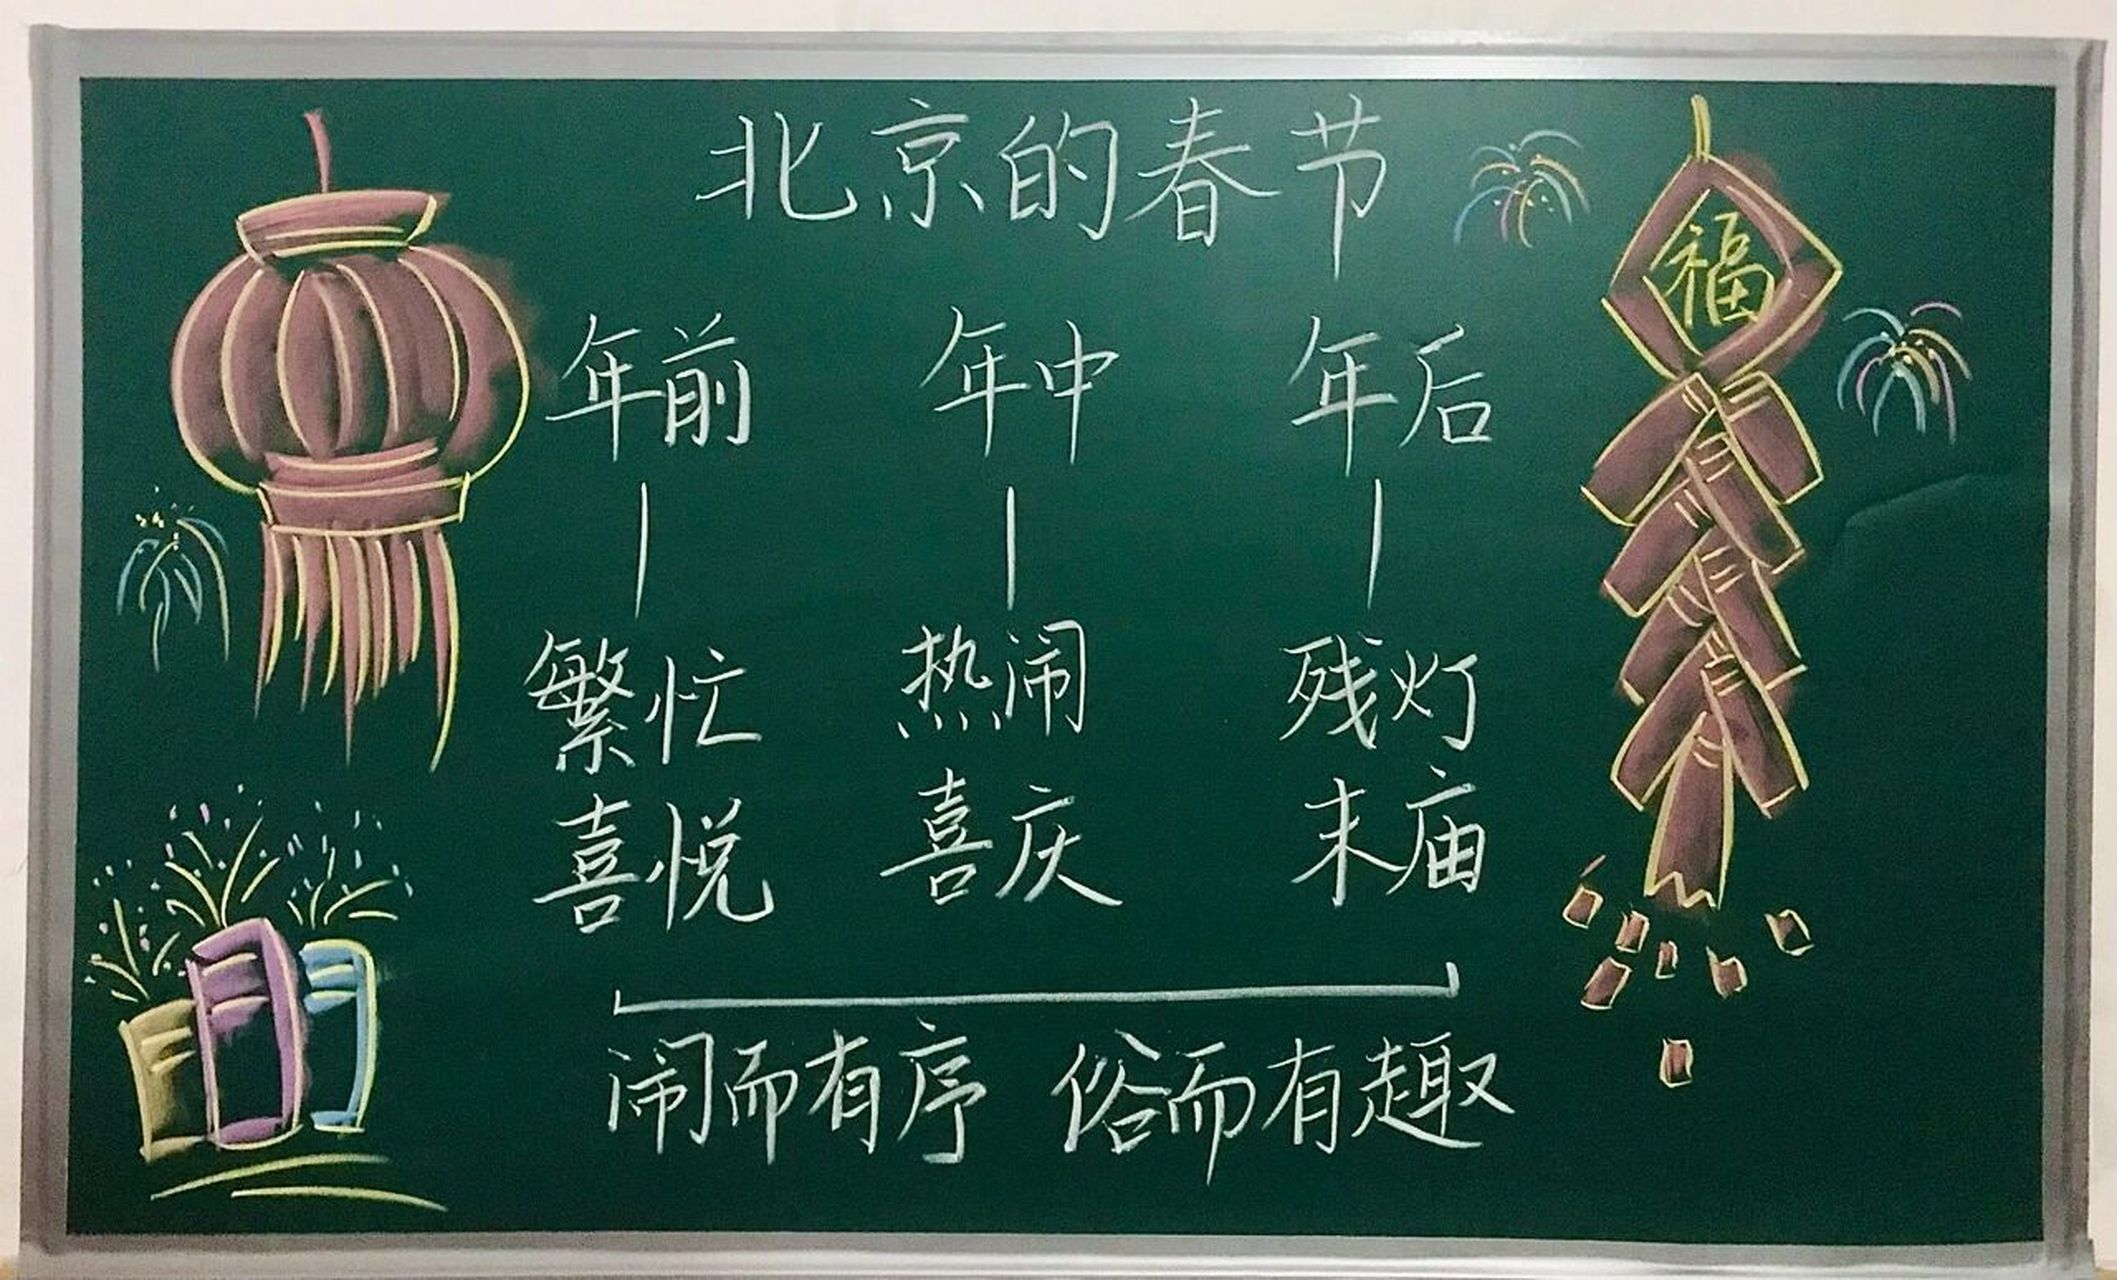 北京的春节
福
年前 年中 年后
繁忙 热闹 残灯
喜悦 喜庆 末庙
闹而有序 俗而有趣